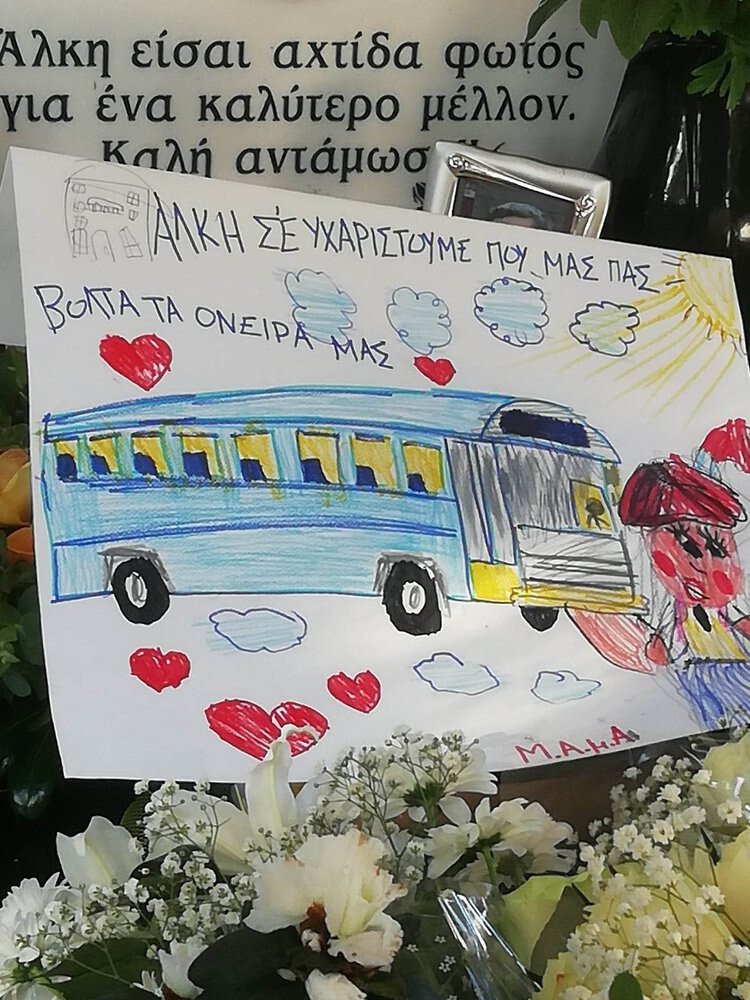 Άλκη είσαι αχτίδα φωτός
για ένα καλύτερο μέλλον.
Καλή αντάμωσ
ΑΛΚΗ Σ'ΕΥΧΑΡΙΣΤΟΥΜΕ ΠΟΥ ΜΑΣ ΠΑΣ
ΒΟΛΤΑ ΤΑ ΟΝΕΙΡΑ ΜΑΣ
Μ.Α.Μ.Α